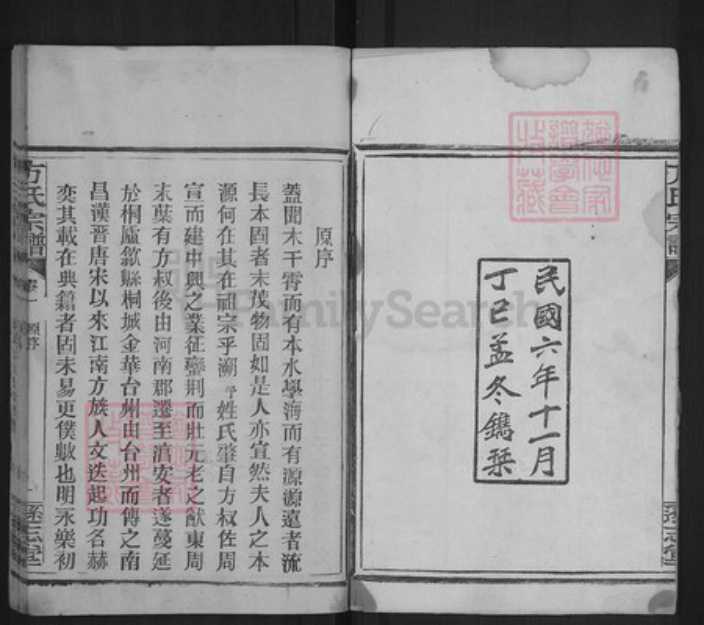 民國六年十一月
丁巳孟冬鐫琹
方氏宗譜
原序
蓋聞木干霄而有本水學海而有源源遠者流
長本固者末茂物固如是人亦宜然夫人之本
源何在其在祖宗乎溯予姓氏肇自方叔佐周
宣而建中興之業征蠻荆而壯元老之猷東周
末葉有方叔後由河南郡遷至淯安者遂蔓延
於桐廬歙縣桐城金華台州由台州而傳之南
昌漢晉唐宋以來江南方族人文迭起功名赫
奕其載在典籍者固未易更僕數也明永樂初
方氏宗譜
卷一
原序
FamilySearch